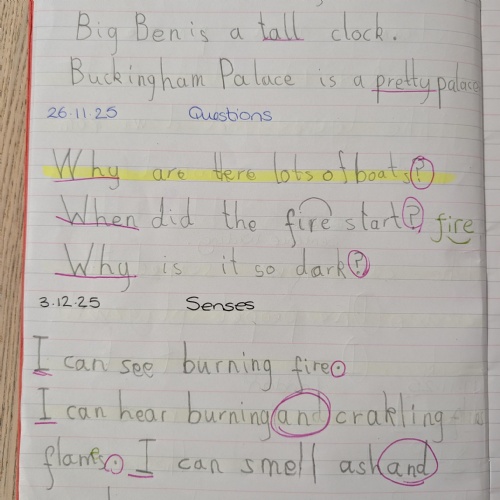 Big Ben is a tall clock.
Buckingham Palace is a pretty palace
26.11.25 Questions
Why are there lots of boats?
When did the fire start? fire
Why is it so dark?
3.12.25 Senses
I can see burning fire.
I can hear burning and crakling
flames. I can smell ash and